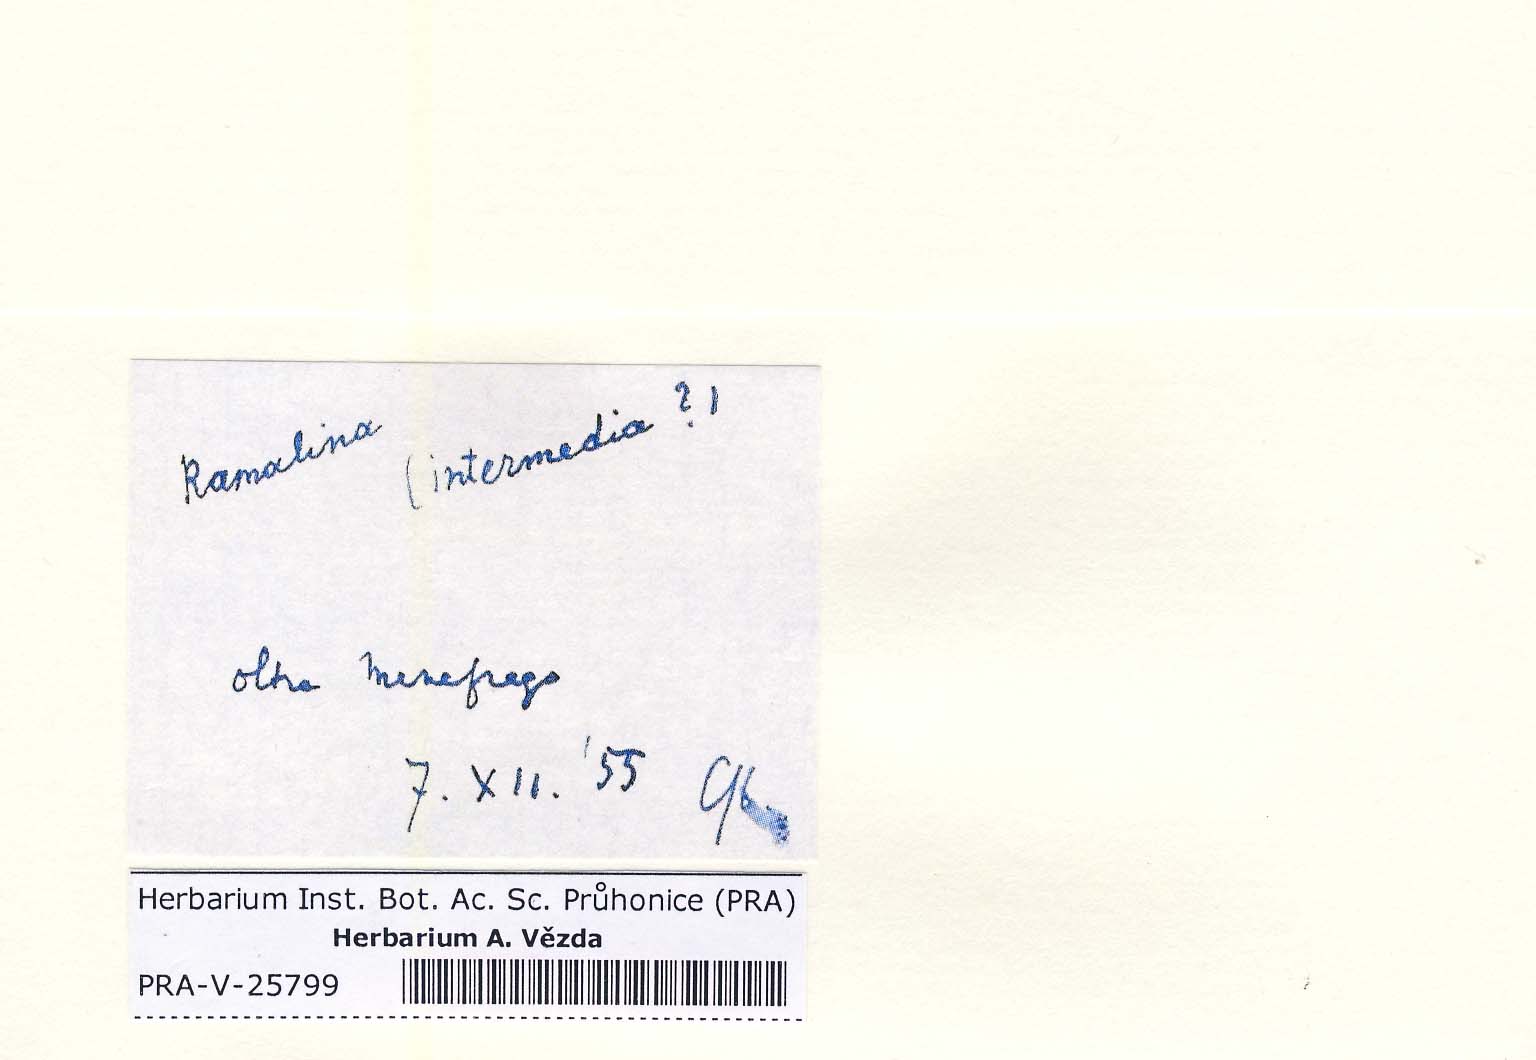 Ramalina (intermedia ?)
oltre Menefrego
7. XII. '55
Herbarium Inst. Bot. Ac. Sc. Průhonice (PRA)
Herbarium A. Vězda
PRA-V-25799